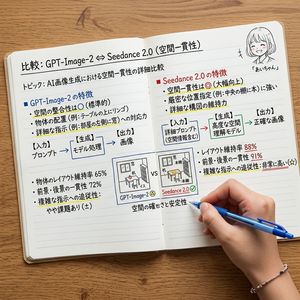 比較：GPT-Image-2 ⇔ Seedance 2.0（空間一貫性）
トピック：AI画像生成における空間一貫性の詳細比較
「あいちゃん」
■GPT-Image-2 の特徴
・空間の整合性は○（標準的）
・物体の配置（例：テーブルの上にリンゴ）
・詳細な指示（例：部屋の左側に窓）への対応力
【入力】
プロンプト
→
【生成】
モデル処理
→
【出力】
画像
・物体のレイアウト維持率 65%
・前景・後景の一貫性 72%
・複雑な指示への追従性：
やや課題あり（±）
■Seedance 2.0 の特徴
・空間一貫性は◎（大幅向上）
・厳密な位置指定（例：中央の棚に本）に強い
・詳細な構図の維持力
【入力】
詳細プロンプト
（空間情報含む）
→
【生成】
高度な空間
理解モデル
→
【出力】
正確な画像
・レイアウト維持率 88%
・前景・後景の一貫性 91%
・複雑な指示への追従性：非常に高い（◎）
GPT-Image-2
VS
Seedance 2.0
空間の確かさと安定性